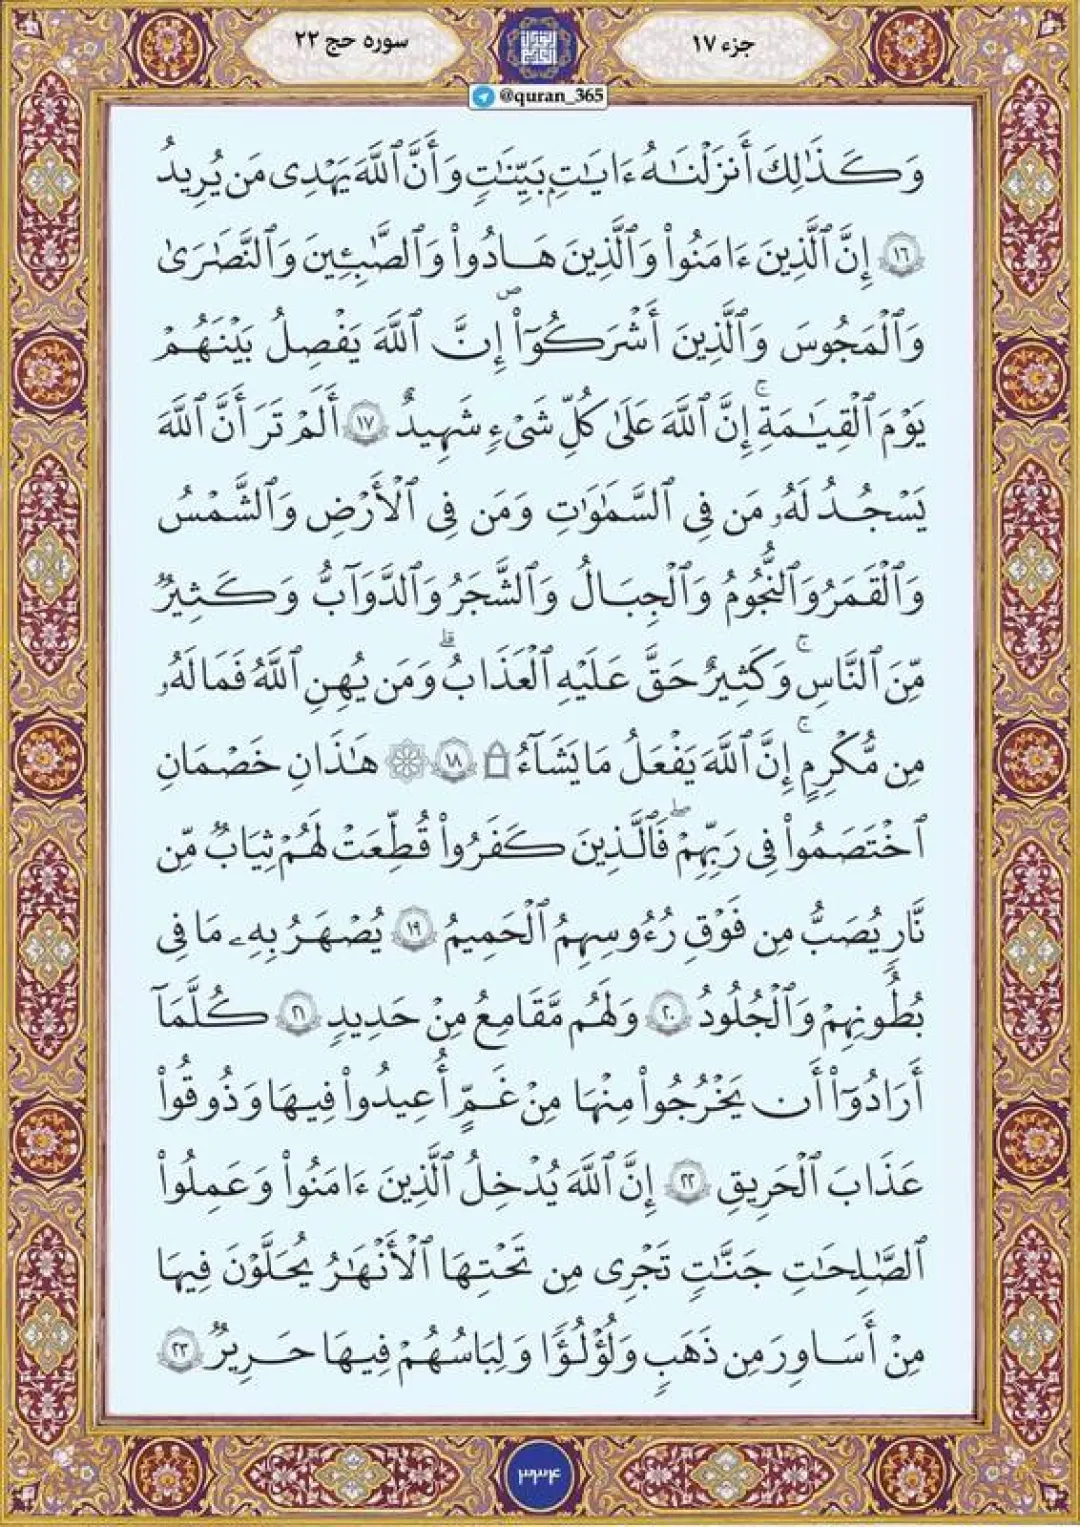 جزء ۱۷
سوره حج ۲۲
@quran_365
وَكَذَٰلِكَ أَنزَلْنَٰهُ ءَايَٰتِۭ بَيِّنَٰتٍ وَأَنَّ ٱللَّهَ يَهْدِى مَن يُرِيدُ
۱۶ إِنَّ ٱلَّذِينَ ءَامَنُوا۟ وَٱلَّذِينَ هَادُوا۟ وَٱلصَّٰبِـِٔينَ وَٱلنَّصَٰرَىٰ
وَٱلْمَجُوسَ وَٱلَّذِينَ أَشْرَكُوٓا۟ إِنَّ ٱللَّهَ يَفْصِلُ بَيْنَهُمْ
يَوْمَ ٱلْقِيَٰمَةِ ۚ إِنَّ ٱللَّهَ عَلَىٰ كُلِّ شَىْءٍ شَهِيدٌ ۱۷ أَلَمْ تَرَ أَنَّ ٱللَّهَ
يَسْجُدُ لَهُۥ مَن فِى ٱلسَّمَٰوَٰتِ وَمَن فِى ٱلْأَرْضِ وَٱلشَّمْسُ
وَٱلْقَمَرُ وَٱلنُّجُومُ وَٱلْجِبَالُ وَٱلشَّجَرُ وَٱلدَّوَآبُّ وَكَثِيرٌ
مِّنَ ٱلنَّاسِ ۚ وَكَثِيرٌ حَقَّ عَلَيْهِ ٱلْعَذَابُ ۗ وَمَن يُهِنِ ٱللَّهُ فَمَا لَهُۥ
مِن مُّكْرِمٍ ۚ إِنَّ ٱللَّهَ يَفْعَلُ مَا يَشَآءُ ۩ ۱۸ ۞ هَٰذَانِ خَصْمَانِ
ٱخْتَصَمُوا۟ فِى رَبِّهِمْ ۖ فَٱلَّذِينَ كَفَرُوا۟ قُطِّعَتْ لَهُمْ ثِيَابٌ مِّن
نَّارٍ يُصَبُّ مِن فَوْقِ رُءُوسِهِمُ ٱلْحَمِيمُ ۱۹ يُصْهَرُ بِهِۦ مَا فِى
بُطُونِهِمْ وَٱلْجُلُودُ ۲۰ وَلَهُم مَّقَامِعُ مِنْ حَدِيدٍ ۲۱ كُلَّمَآ
أَرَادُوٓا۟ أَن يَخْرُجُوا۟ مِنْهَا مِنْ غَمٍّ أُعِيدُوا۟ فِيهَا وَذُوقُوا۟
عَذَابَ ٱلْحَرِيقِ ۲۲ إِنَّ ٱللَّهَ يُدْخِلُ ٱلَّذِينَ ءَامَنُوا۟ وَعَمِلُوا۟
ٱلصَّٰلِحَٰتِ جَنَّٰتٍ تَجْرِى مِن تَحْتِهَا ٱلْأَنْهَٰرُ يُحَلَّوْنَ فِيهَا
مِنْ أَسَاوِرَ مِن ذَهَبٍ وَلُؤْلُؤًا وَلِبَاسُهُمْ فِيهَا حَرِيرٌ ۲۳
۳۳۴